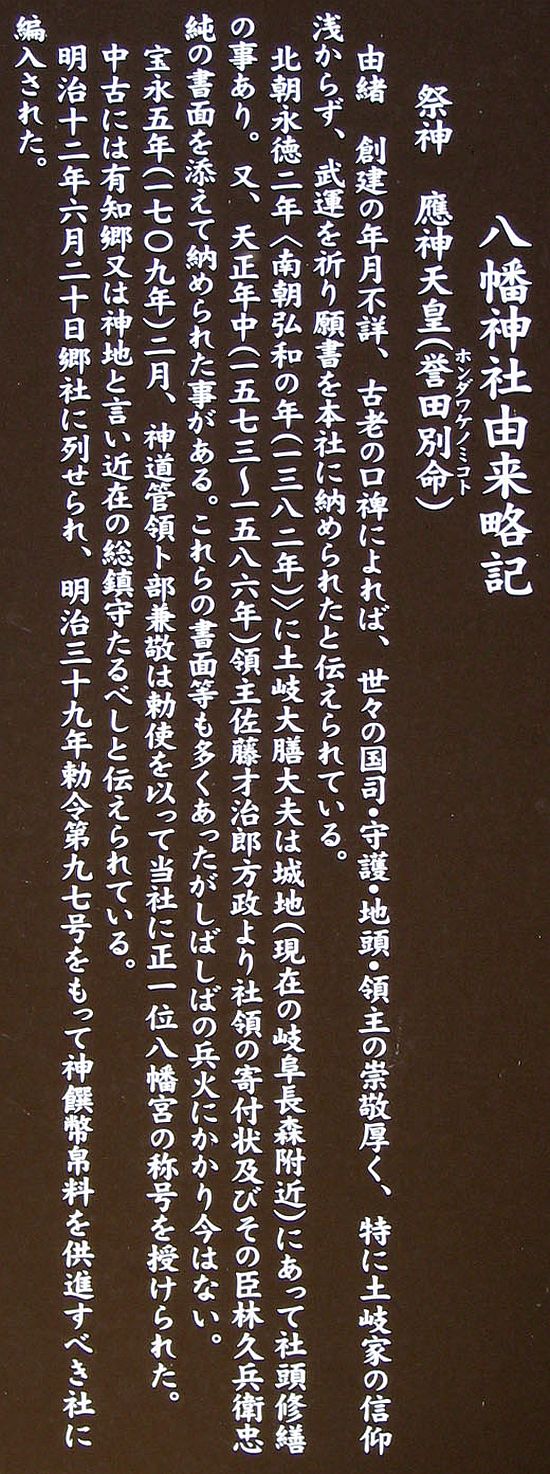 八幡神社由来略記
祭神　應神天皇（誉田別命）
ホンダワケノミコト
由緒　創建の年月不詳、古老の口禅によれば、世々の国司・守護・地頭・領主の崇敬厚く、特に土岐家の信仰
浅からず、武運を祈り願書を本社に納められたと伝えられている。
北朝永徳二年〈南朝弘和の年（一三八二年）〉に土岐大膳大夫は城地（現在の岐阜長森附近）にあって社頭修繕
の事あり。又、天正年中（一五七三〜一五八六年）領主佐藤才治郎方政より社領の寄付状及びその臣林久兵衛忠
純の書面を添えて納められた事がある。これらの書面等も多くあったがしばしばの兵火にかかり今はない。
宝永五年（一七〇九年）二月、神道管領卜部兼敬は勅使を以って当社に正一位八幡宮の称号を授けられた。
中古には有知郷又は神地と言い近在の総鎮守たるべしと伝えられている。
明治十二年六月二十日郷社に列せられ、明治三十九年勅令第九七号をもって神饌幣帛料を供進すべき社に
編入された。